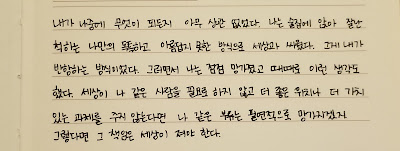 내가 나중에 무엇이 되든지 아무 상관 없었다. 나는 술집에 앉아 잘난
척하는 나만의 독특하고 아름답지 못한 방식으로 세상과 싸웠다. 그게 내가
반항하는 방식이었다. 그러면서 나는 점점 망가졌고 때때로 이런 생각도
했다. 세상이 나 같은 사람을 필요로 하지 않고 더 좋은 위치나 더 가치
있는 과제를 주지 않는다면 나 같은 부류는 필연적으로 망가지겠지
그렇다면 그 책임은 세상이 져야 한다.